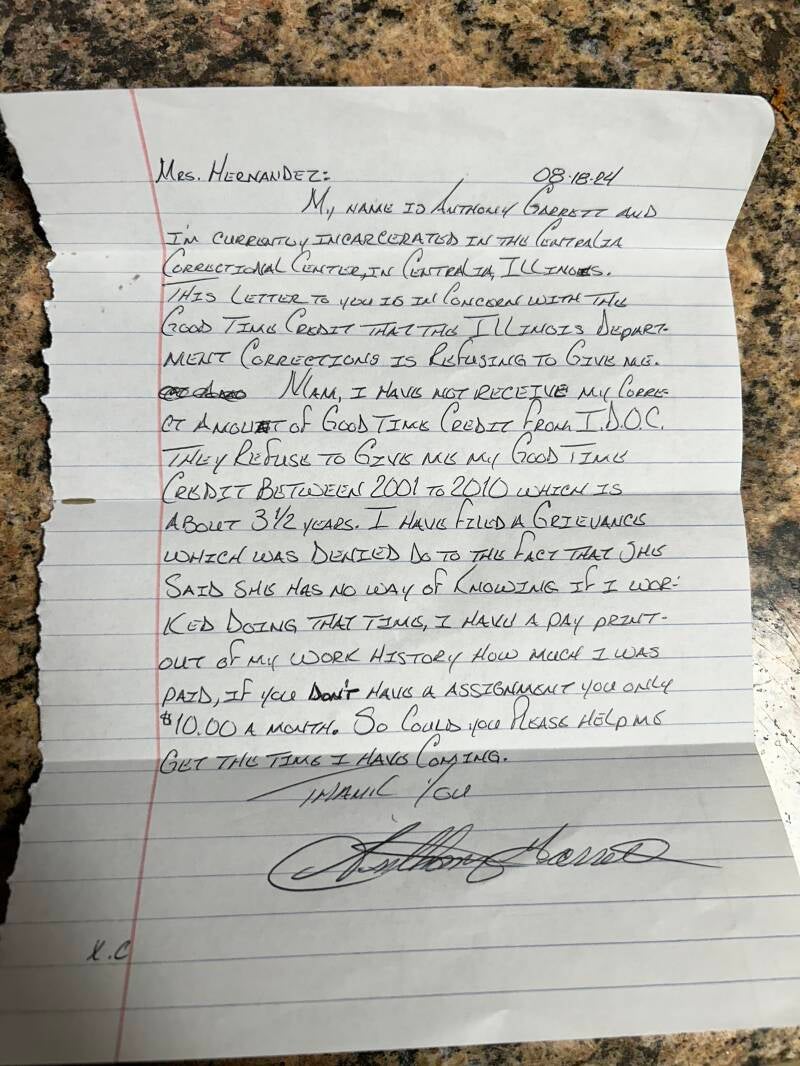 Mrs. Hernandez: 08-18-24
My name is Anthony Garrett and
I'm currently incarcerated in the Centralia
Correctional Center, in Centralia, Illinois.
This letter to you is in concern with the
Good Time Credit that the Illinois Depart-
ment Corrections is refusing to give me.
Mam, I have not receive my corre-
ct amount of Good Time Credit from I.D.O.C.
They refuse to give me my Good Time
Credit between 2001 to 2010 which is
about 3 1/2 years. I have filed a grievance
which was denied do to the fact that she
said she has no way of knowing if I wor-
ked doing that time, I have a pay print-
out of my work history how much I was
paid, if you don't have a assignment you only
$10.00 a month. So could you please help me
get the time I have coming.
Thank You
Anthony Garrett
X.C